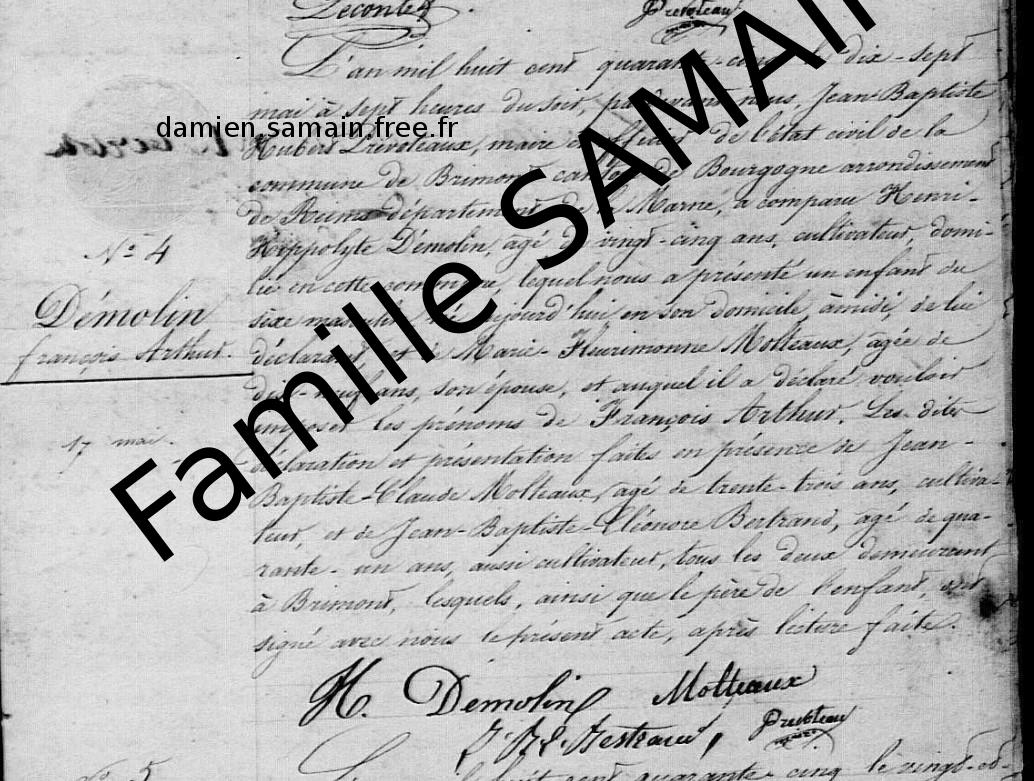 Leconte
Prévoteau
L'an mil huit cent quarante-cinq le dix-sept
mai à sept heures du soir, pardevant nous, Jean Baptiste
Hubert Prévoteaux, maire officier de l'état civil de la
commune de Brimont canton de Bourgogne arrondissement
de Reims département de la Marne, a comparu Henri-
Hippolyte Démolin, agé de vingt-cinq ans, cultivateur, domi-
lié en cette commune, lequel nous a présenté un enfant du
sèxe masculin né aujourd'hui en son domicile, à midi, de lui
déclarant et de Marie- Molteaux, agée de
dix-neuf ans, son épouse, et auquel il a déclaré vouloir
imposer les prénoms de François Arthur. Les dites
déclaration et présentation faites en présence de Jean-
Baptiste-Claude Molteaux, agé de trente-trois ans, cultiva-
teur, et de Jean-Baptiste-Eléonore Bertrand, agé de qua-
rante-un ans, aussi cultivateur, tous les deux demeurant
à Brimont, lesquels, ainsi que le père de l'enfant, ont
signé avec nous le présent acte, après lécture faite.
H. Demolin
Molteaux
Prévoteau
N° 4
Démolin
françois Arthur.
17 mai.
N° 5
quarante cinq le vingt-
damien.samain.free.fr
Famille SAMAIN